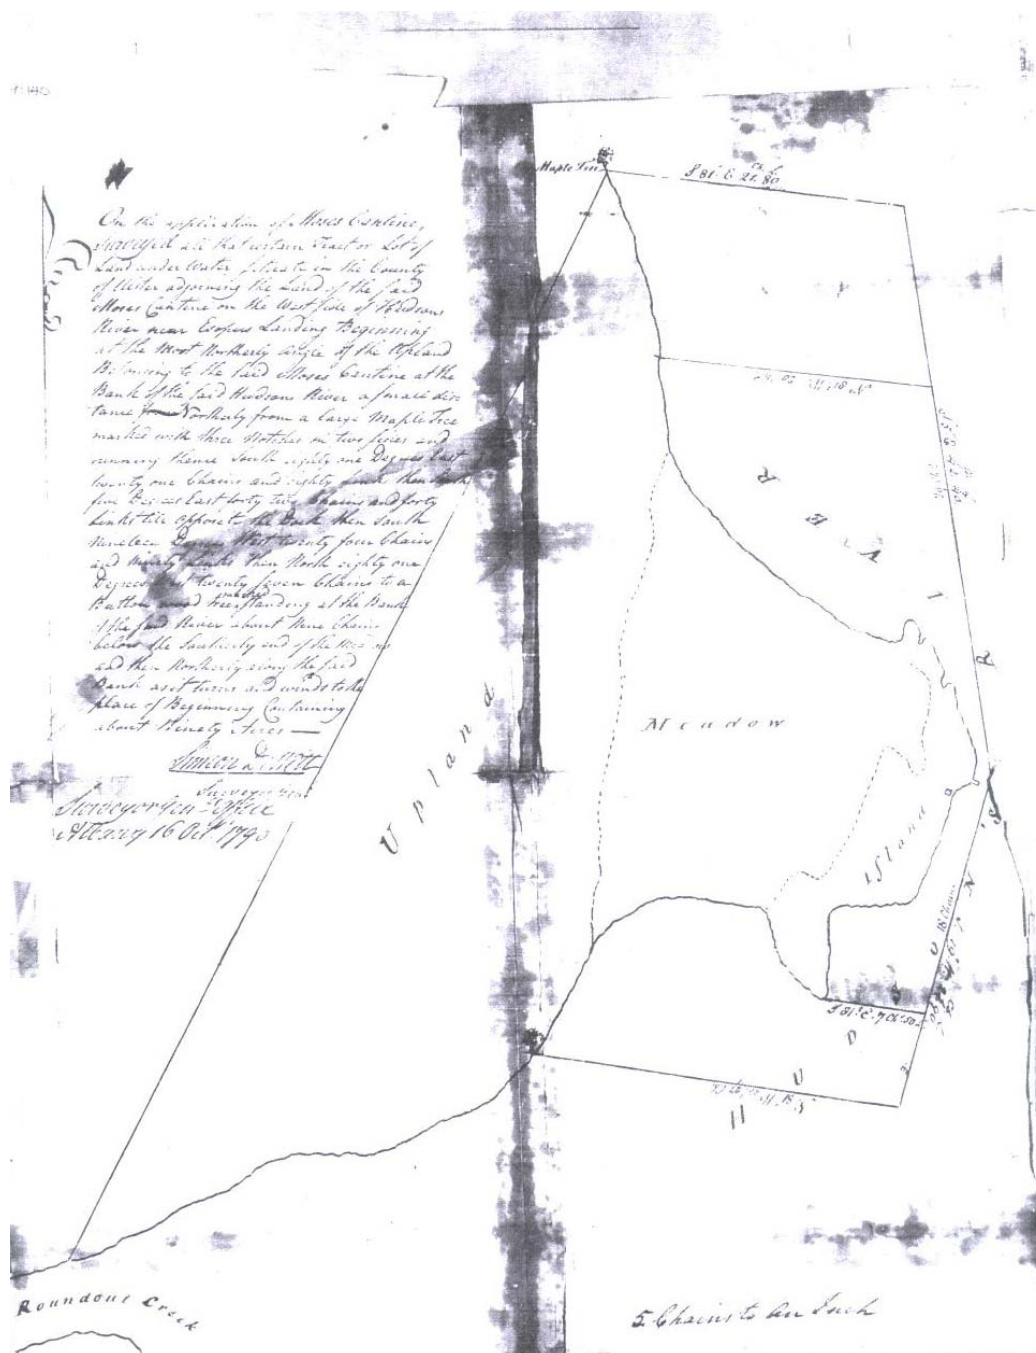 On the application of Moses Cantine,
Surveyed all that certain Tract or Lot of
Land under Water situate in the County
of Ulster adjoining the Land of the said
Moses Cantine on the West side of Hudsons
River near Esopus Landing Beginning
at the Most Northerly Angle of the Upland
Belonging to the said Moses Cantine at the
Bank of the said Hudsons River a small dis
tance Northerly from a large Maple Tree
marked with three Notches on two sides and
running thence South eighty one Degrees East
twenty one Chains and eighty
five Degrees East forty two Chains and forty
Links till opposite the Dock then South
Nineteen Degrees West twenty four Chains
and Ninety Links then North eighty one
Degrees West twenty seven Chains to a
Button wood tree standing at the Bank
of the said River about Nine Chains
below the Southerly end of the
and then Northerly along the said
Bank as it turns and winds to the
place of Beginning Containing
about Ninety Acres —
Simeon De Witt
Surveyor Gen
Surveyor Genls Office
Albany 16 Octr. 1790
Maple Tree
S 81° E 21. 80
Upland
Meadow
Island
HUDSUN'S RIVER
18 Chains
S 81° E. 7 Ch. 50
Roundout Creek
5 Chains to An Inch